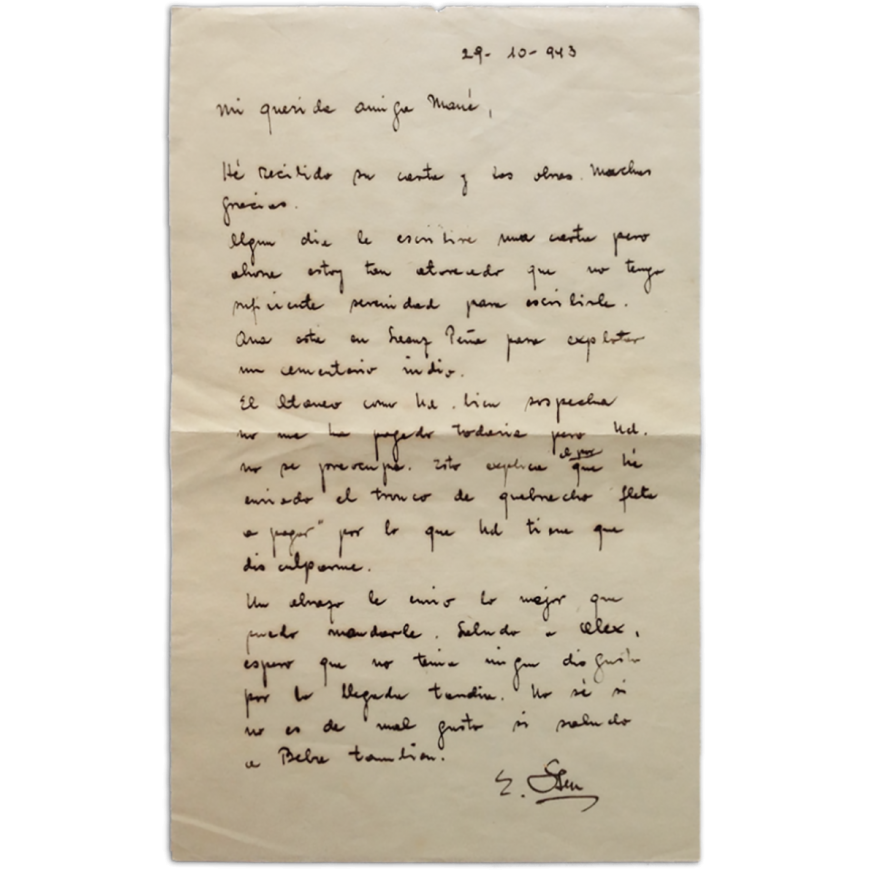 29- 10- 943
Mi querida amiga Mané,
Hé recibido su carta y las obras. Muchas
gracias.
Algun dia le escribire una carta pero
ahora estoy tan atareado que no tengo
sufiente serenidad para escribirle.
Ana esta en Saenz Peña para explotar
un cementario indio.
El como Ud. bien sospecha
no me ha pagado todavia pero Ud.
no se preocupe. Esto explica el por
que hé
enviado el tronco de quebracho flete
a pagar" por lo que Ud tiene que
disculparme.
Un abrazo le envio lo mejor que
puedo mandarle. Saludo a Alex,
espero que no tenia ningun disgusto
por la llegada tardia. No sé si
no es de mal gusto si saludo
a Bebe tambien.